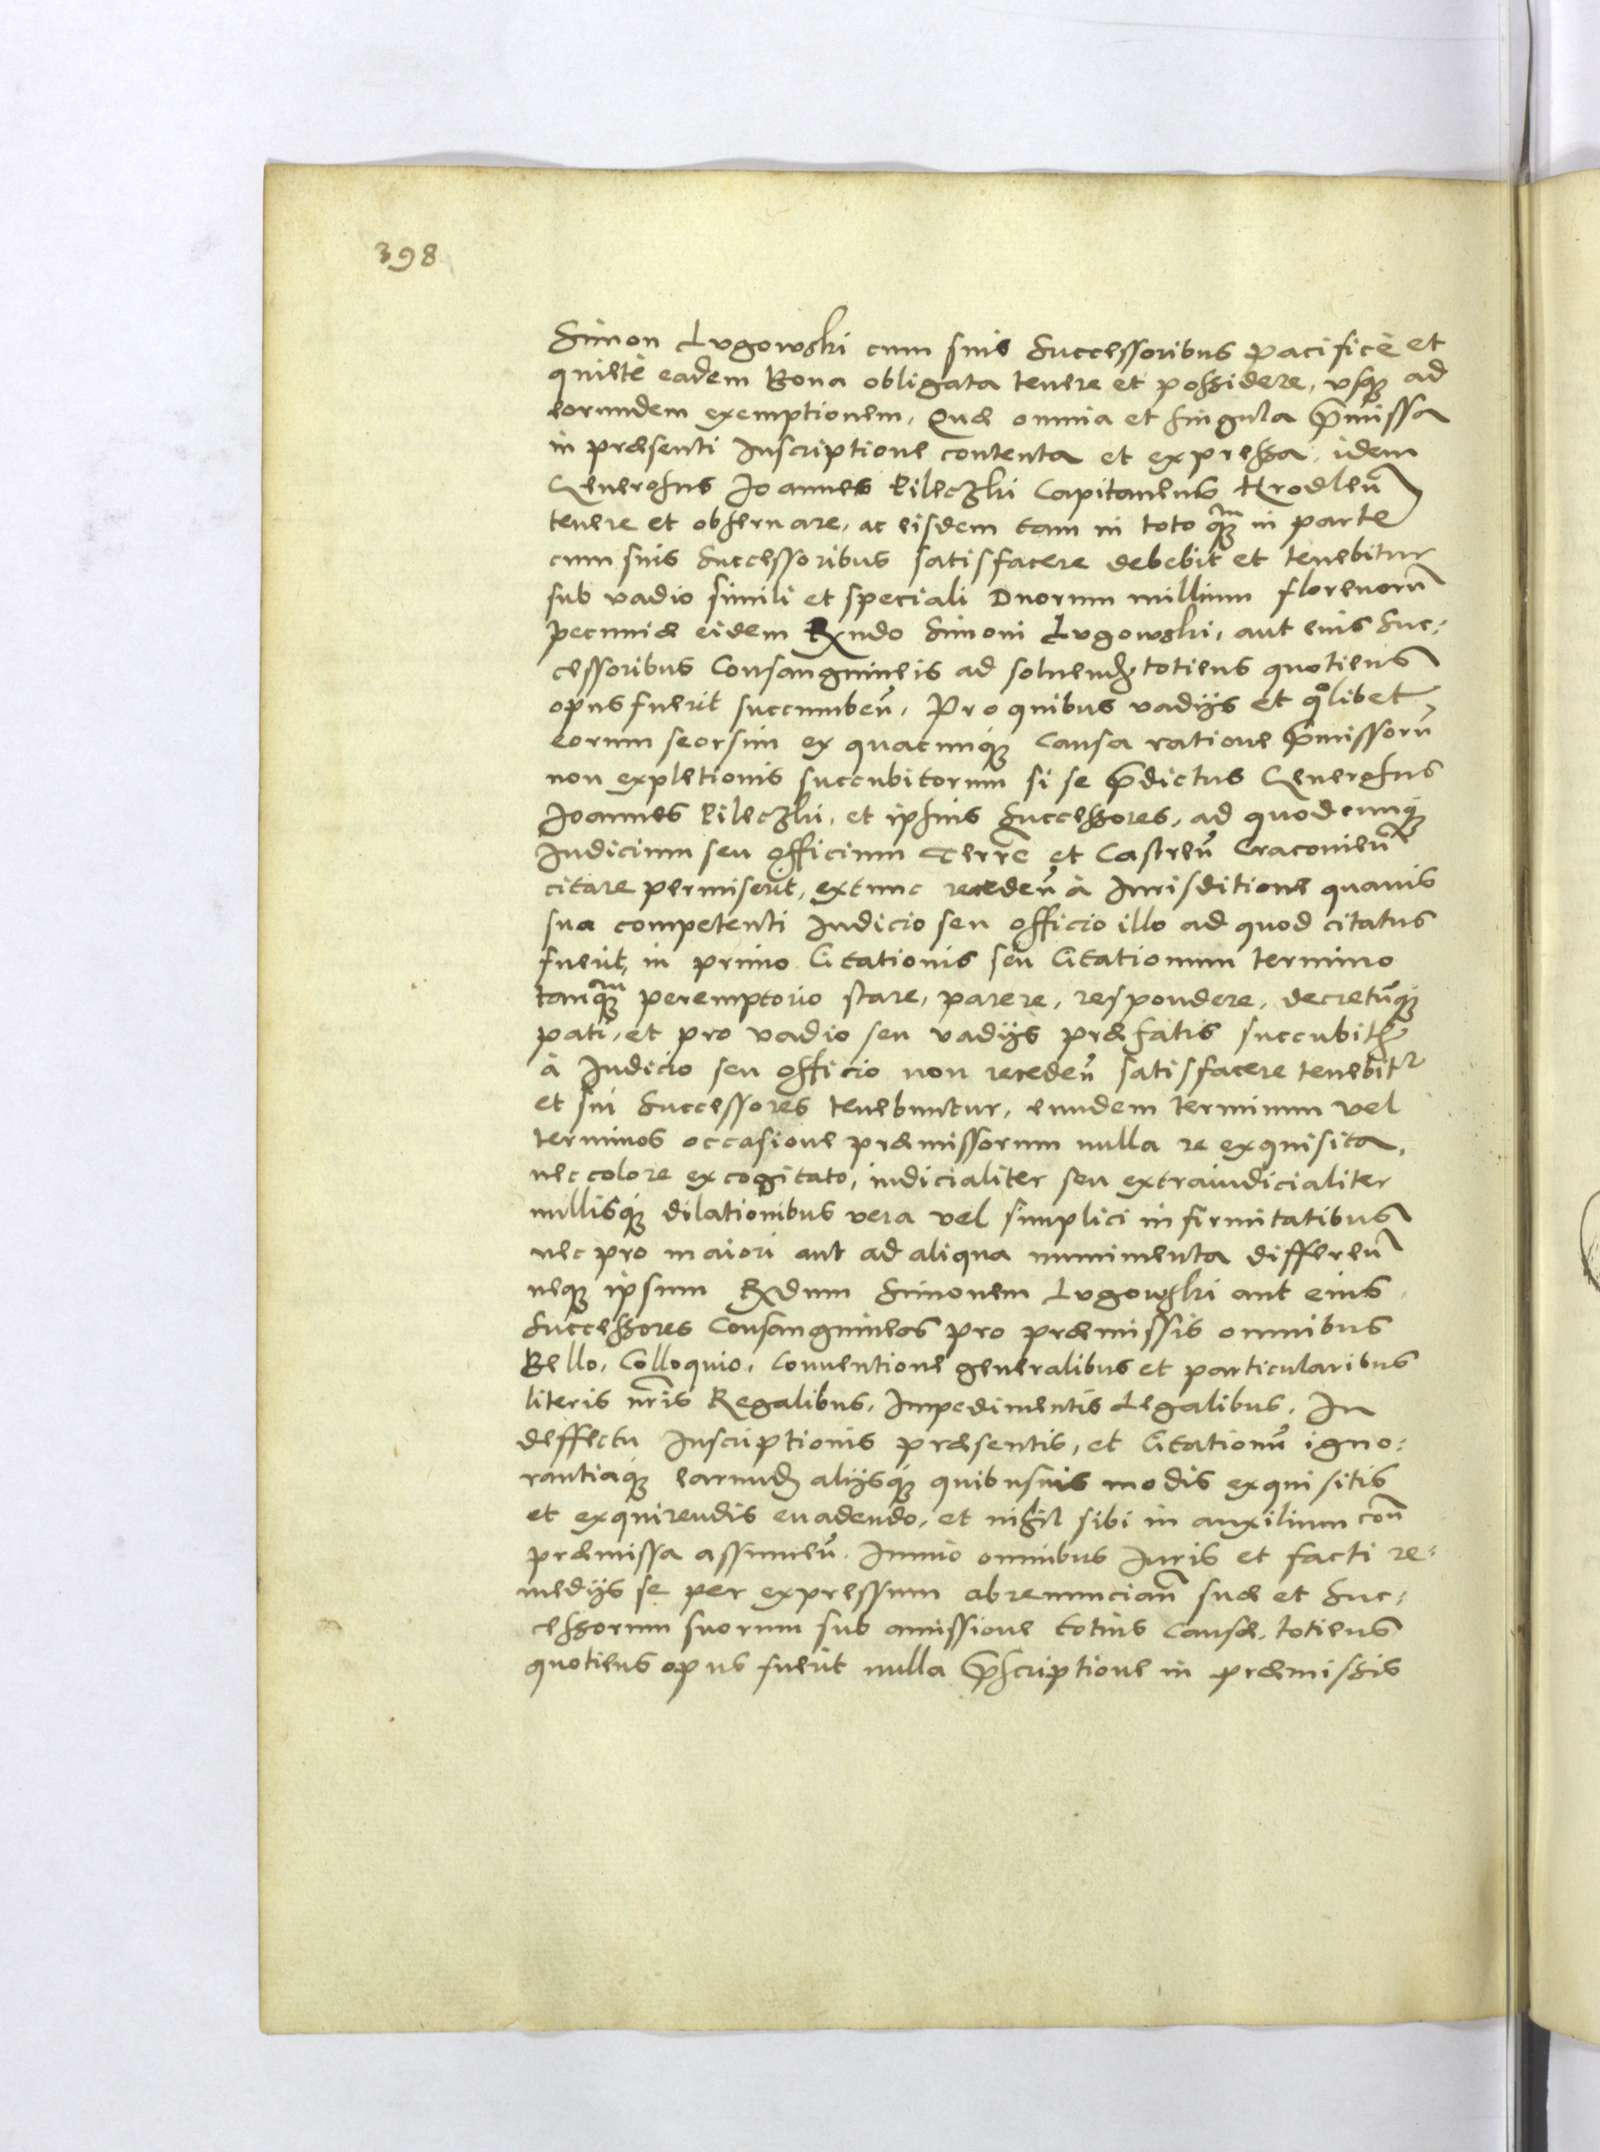 398
Simon Lugowski cum suis Successoribus pacificè et
quietè eadem Bona obligata tenere et possidere, vsq; ad
eorundem exemptionem. Quæ omnia et singula p̃missa
in præsenti Inscriptione contenta et expressa, idem
Generosus Joannes Pileczki Capitaneus Hrodleñ
tenere et obseruare, ac eisdem tam in toto q̃; in parte
cum suis Successoribus satisfacere debebit et tenebitur
sub vadio simili et speciali Duorum millium florenorũ
pecuniæ eidem Rndo Simoni Lugowski, aut eius Suc:
cessoribus Consanguineis ad soluend totiens quotiens
opus fuerit succumbeñ. Pro quibus vadijs et qolibet
eorum seorsim ex quacunq; causa ratione p̃missorũ
non expletionis succubitorum si se p̃dictus Generosus
Joannes Pileczki, et ipsius Successores, ad quodcunq;
Iudicium seu officium Terrẽ et Castreñ Cracouieñ
citare permiserit, extunc recedeñ à Iurisditione quauis
sua competenti Iudicio seu officio illo ad quod citatus
fuerit, in primo Citationis seu Citationum termino
tanq̃; peremptorio stare, parere, respondere, decretũq;
pati, et pro vadio seu vadijs præfatis succubit
à Iudicio seu officio non recedeñ satisfacere tenebitr
et sui Successores tenebuntur, eundem terminum vel
terminos occasione præmissorum nulla re exquisita,
nec colore excogitato, iudicialiter seu extraiudicialiter
nullisq; dilationibus vera vel simplici infirmitatibus
nec pro maiori aut ad aliqua munimenta differeñ
neq; ipsum Rdum Simonem Lugowski aut eius
Successores Consanguineos pro præmissis omnibus
Bello, Colloquio, Conuentione generalibus et particularibus
literis nr̃is Regalibus, Impedimentis Legalibus, In
deffectu Inscriptionis præsentis, et Citationũ igno:
rantiaq; earund alijsq; quibusuis modis exquisitis
et exquirendis euadendo, et nihil sibi in auxilium coñ
præmissa assumeñ. Immo omnibus Iuris et facti re:
medijs se per expressum abrenuncian̄ suæ et Suc:
cessorum suorum sub amissione totius causæ, totiens
quotiens opus fuerit nulla p̃scriptione in præmissis